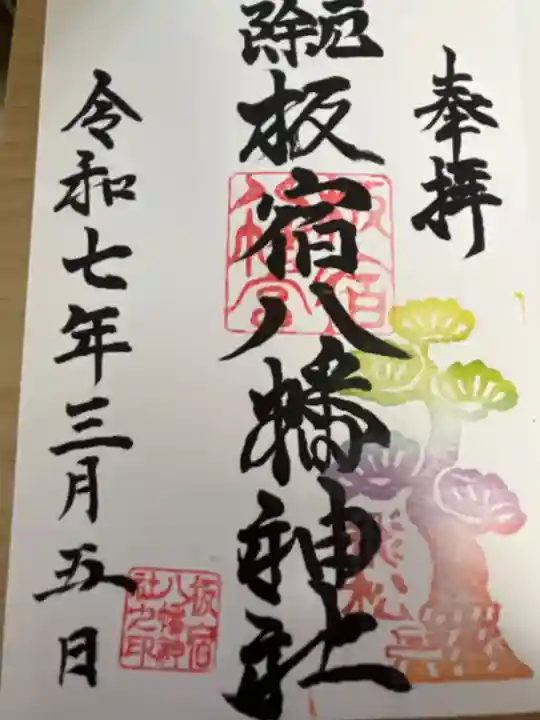 奉拝
厄除
板宿八幡神社
板宿八幡宮
飛松
令和七年三月五日
板宿八幡神社之印